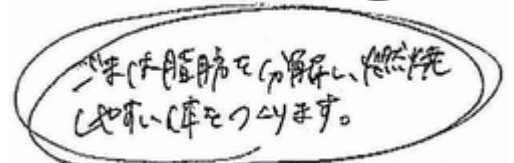 ごまは脂肪を分解し、燃焼
しやすい体をつくります。